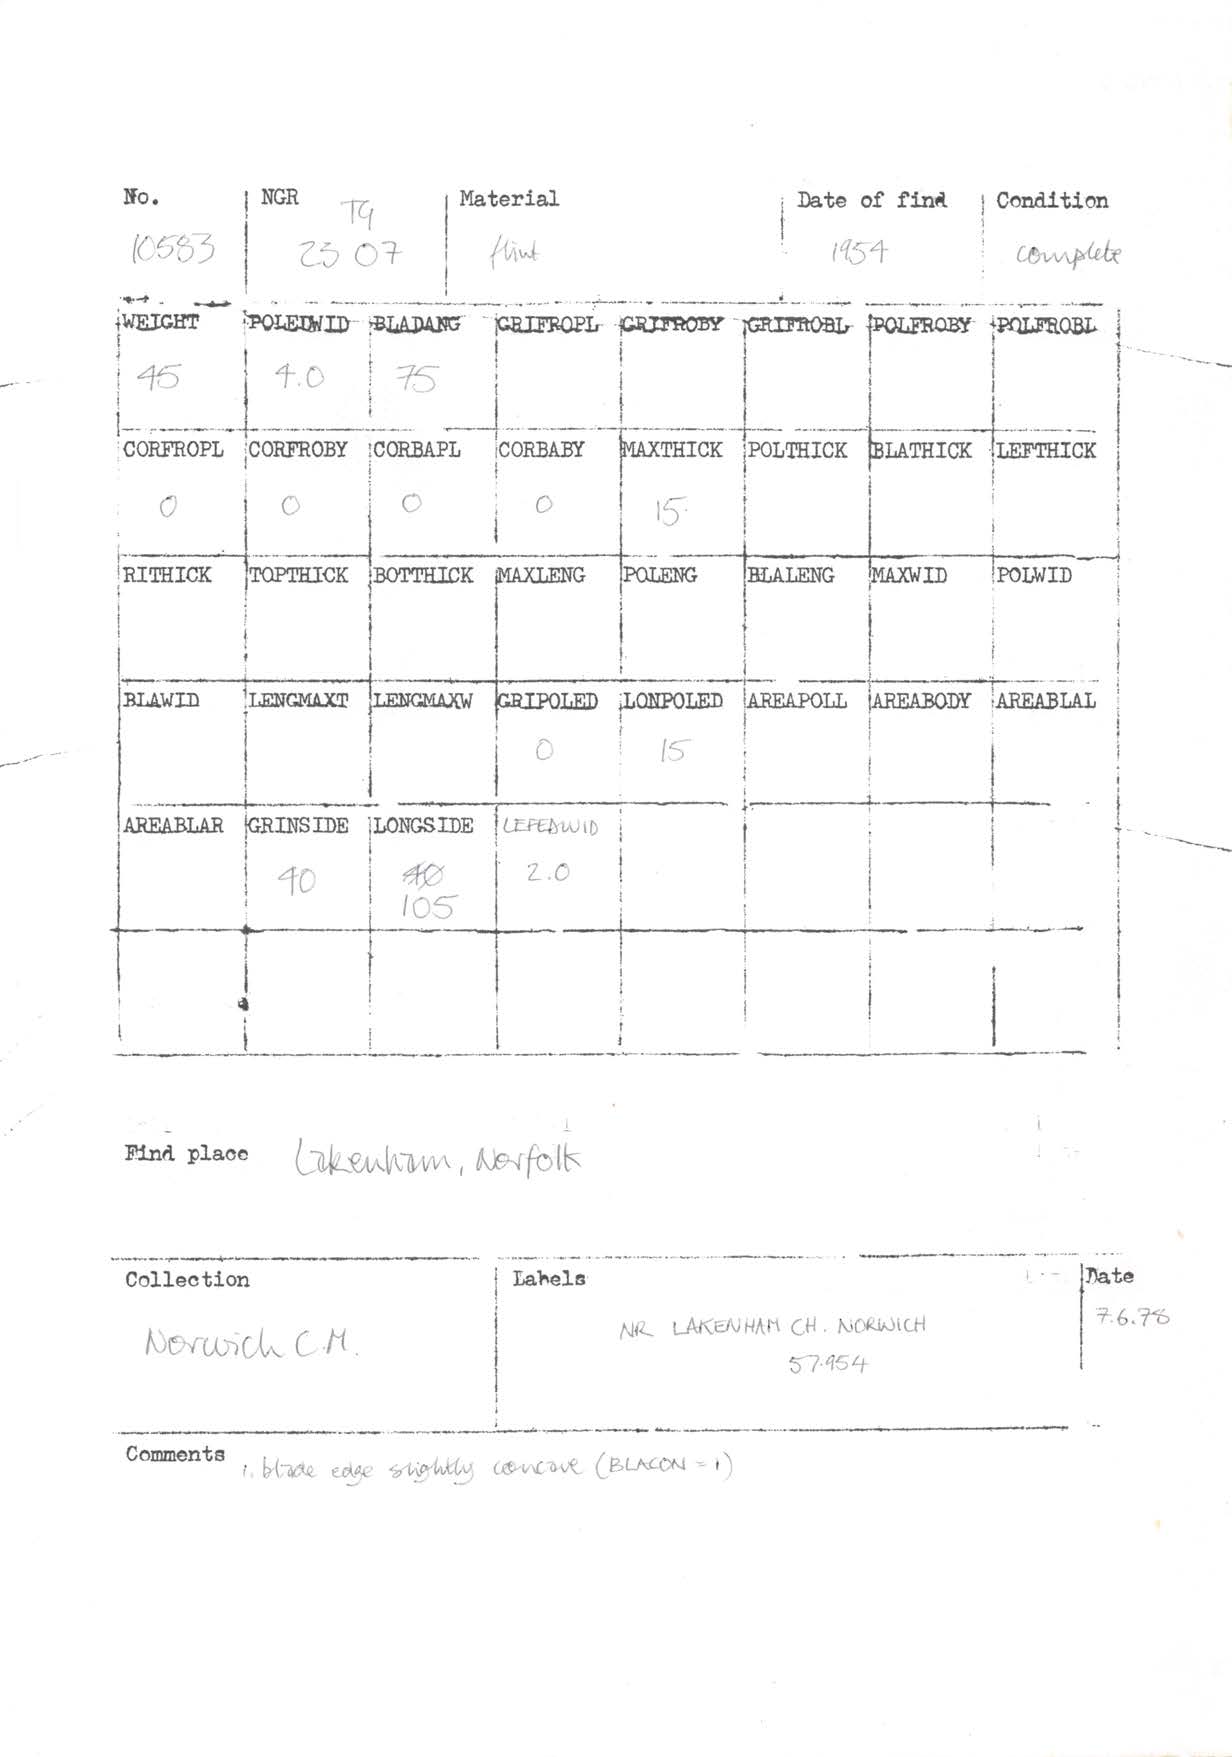 No. NGR Material Date of find Condition
TG
10583 23 07 flint 1954 complete
WEIGHT POLEDWID BLADANG GRIFROPL GRIFROBY GRIFROBL POLFROBY POLFROBL
45 4.0 75
CORFROPL CORFROBY CORBAPL CORBABY MAXTHICK POLTHICK BLATHICK LEFTHICK
0 0 0 0 15
RITHICK TOPTHICK BOTTHICK MAXLENG POLENG BLALENG MAXWID POLWID
BLAWID LENGMAXT LENGMAXW GRIPOLED LONPOLED AREAPOLL AREABODY AREABLAL
0 15
AREABLAR GRINSIDE LONGSIDE LEFEDWID
40 40 2.0
105
Find place Lakenham, Norfolk
Collection Labels Date
7.6.78
Norwich C.M. NR LAKENHAM CH. NORWICH
57.954
Comments 1. blade edge slightly concave (BLACON = 1)